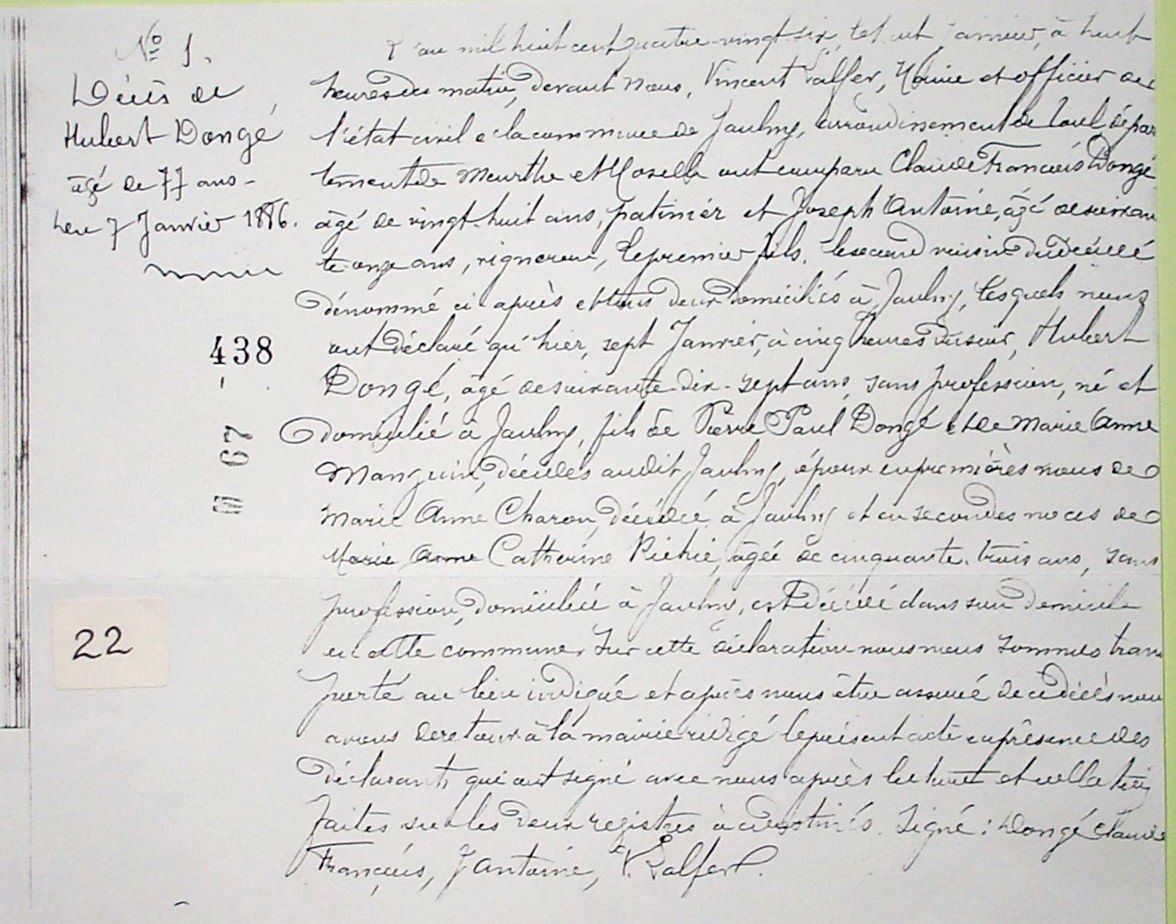 No 1.
Décès de
Hubert Dongé
âgé de 77 ans
Le 7 Janvier 1886.
438
67
22
L'an mil huit cent quatre-vingt-six, le huit Janvier, à huit
heures du matin, devant Nous, Vincent Maire et officier de
l'état civil de la commune de Jaulny, arrondissement de Toul, dépar
tement de Meurthe et Moselle ont comparu Claude François Dongé
âgé de vingt-huit ans, et Joseph Antoine, âgé de soixan
te onze ans, vigneron, le premier fils, le second voisin du décédé
dénommé ci-après et tous deux domiciliés à Jaulny, lesquels nous
ont déclaré qu'hier, sept Janvier, à cinq heures du soir, Hubert
Dongé, âgé de soixante-dix-sept ans, sans profession, né et
domicilié à Jaulny, fils de Pierre Paul Dongé et de Marie Anne
Manguin, décédés audit Jaulny, époux en premières noces de
Marie Anne Charon, décédée à Jaulny et en secondes noces de
Marie Anne Catherine âgée de cinquante-trois ans, sans
profession, domiciliée à Jaulny, est décédé dans son domicile
en cette commune, Sur cette déclaration nous nous sommes trans
porté au lieu indiqué et après nous être assuré de ce décès nous
avons de retour à la mairie rédigé le présent acte en présence des
déclarants qui ont signé avec nous après lecture et collation
faites sur les deux registres à ce destinés. Signé: Dongé Claude
François, J Antoine, V.